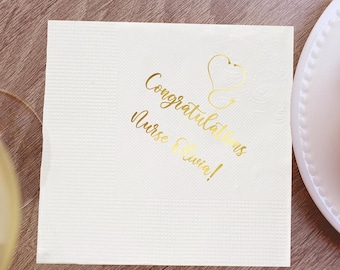 Congratulations
Nurse Olivia!